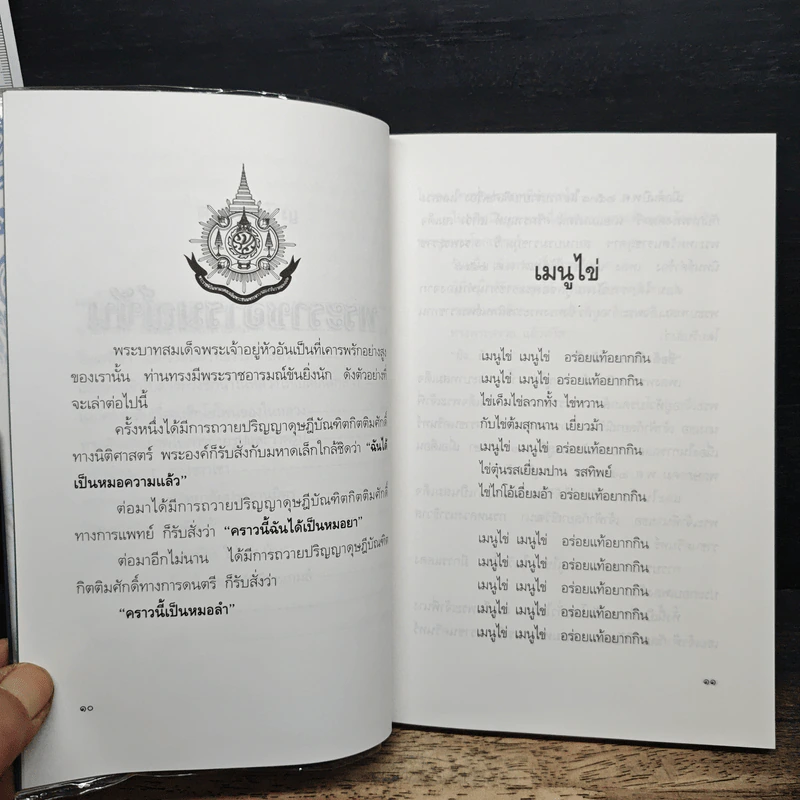 พระบาทสมเด็จพระเจ้าอยู่หัวอันเป็นที่เคารพรักอย่างสูง
ของเรานั้น ท่านทรงมีพระราชอารมณ์ขันยิ่งนัก ดังตัวอย่างที่
จะเล่าต่อไปนี้
ครั้งหนึ่งได้มีการถวายปริญญาดุษฎีบัณฑิตกิตติมศักดิ์
ทางนิติศาสตร์ พระองค์ก็รับสั่งกับมหาดเล็กใกล้ชิดว่า “ฉันได้
เป็นหมอความแล้ว”
ต่อมาได้มีการถวายปริญญาดุษฎีบัณฑิตกิตติมศักดิ์
ทางการแพทย์ ก็รับสั่งว่า “คราวนี้ฉันได้เป็นหมอยา”
ต่อมาอีกไม่นาน ได้มีการถวายปริญญาดุษฎีบัณฑิต
กิตติมศักดิ์ทางการดนตรี ก็รับสั่งว่า
“คราวนี้เป็นหมอลำ”
๑๐
เมนูไข่
เมนูไข่ เมนูไข่ อร่อยแท้อยากกิน
เมนูไข่ เมนูไข่ อร่อยแท้อยากกิน
ไข่เค็มไข่ลวกทั้ง ไข่หวาน
กับไข่ต้มสุกนาน เยี่ยวม้า
เมนูไข่ เมนูไข่ อร่อยแท้อยากกิน
ไข่ตุ๋นรสเยี่ยมปาน รสทิพย์
ไข่ไก่โอ้เอี่ยมอ้า อร่อยแท้อยากกิน
เมนูไข่ เมนูไข่ อร่อยแท้อยากกิน
เมนูไข่ เมนูไข่ อร่อยแท้อยากกิน
เมนูไข่ เมนูไข่ อร่อยแท้อยากกิน
เมนูไข่ เมนูไข่ อร่อยแท้อยากกิน
เมนูไข่ เมนูไข่ อร่อยแท้อยากกิน
๑๑